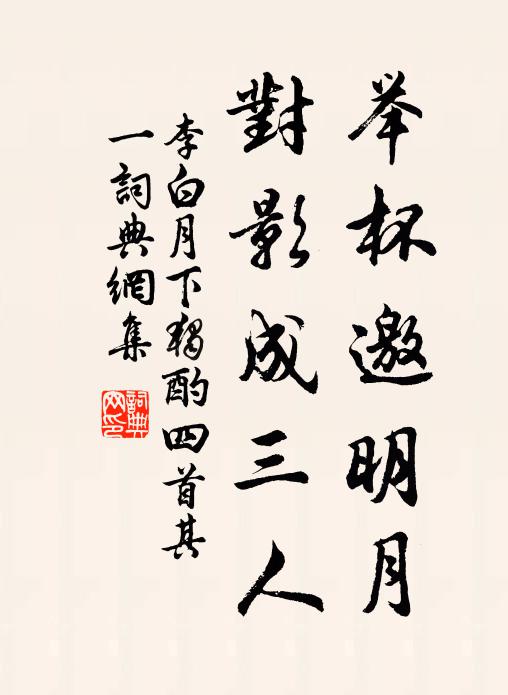 举杯邀明月
對影成三人
李白月下独酌四首其
一詞典網集
詞典网印